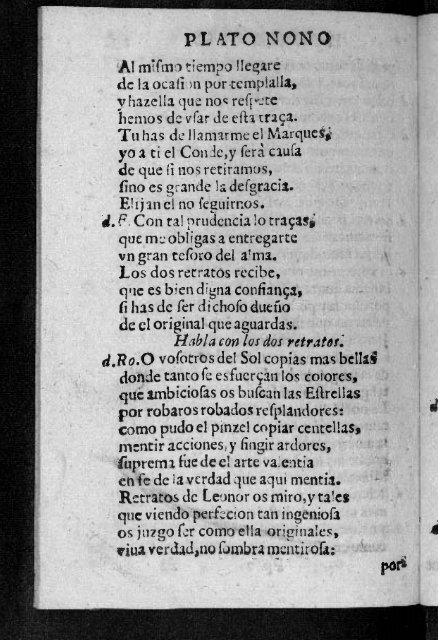 PLATO NONO
Al miſmo tiempo llegare
de la ocaſion por templalla,
y hazella que nos reſpete
hemos de vſar de eſta traça.
Tu has de llamarme el Marques,
yo a ti el Conde, y ſerà cauſa
de que ſi nos retiramos,
ſino es grande la deſgracia.
Elijan el no ſeguirnos.
d.F. Con tal prudencia lo traças,
que me obligas a entregarte
vn gran teſoro del alma.
Los dos retratos recibe,
que es bien digna confiança,
ſi has de ſer dichoſo dueño
de el original que aguardas.
Habla con los dos retratos.
d.Ro. O voſotros del Sol copias mas bellas
donde tanto ſe esfuerçan los colores,
que ambicioſas os buſcan las Eſtrellas
por robaros robados reſplandores:
como pudo el pinzel copiar centellas,
mentir acciones, y fingir ardores,
ſuprema fue de el arte valentia
en fe de la verdad que aqui mentia.
Retratos de Leonor os miro, y tales
que viendo perfecion tan ingenioſa
os juzgo ſer como ella originales,
viua verdad, no ſombra mentiroſa:
por